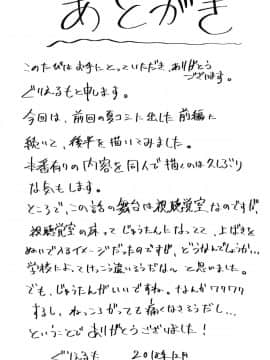 あとがき
このたびはお手にとっていただき、ありがとう
ございます。
ぐりえるもと申します。
今回は、前回の夏コミに出した前編に
続いて、後半を描いてみました。
本番有りの内容を同人で描くのは久しぶり
な気もします。
ところで、この話の舞台は視聴覚室なのですが、
視聴覚室の床ってじゅうたんになってて、上ばきを
ぬいで入るイメージだったのですが、どうなんでしょうか…
学校によってけっこう違いそうだな〜と思いました。
でも、じゅうたんがいいですね。なんかワクワク
するし、ねっころがってても痛くなさそうだし…
ということでありがとうございました！
ぐりえるも 2012年12月